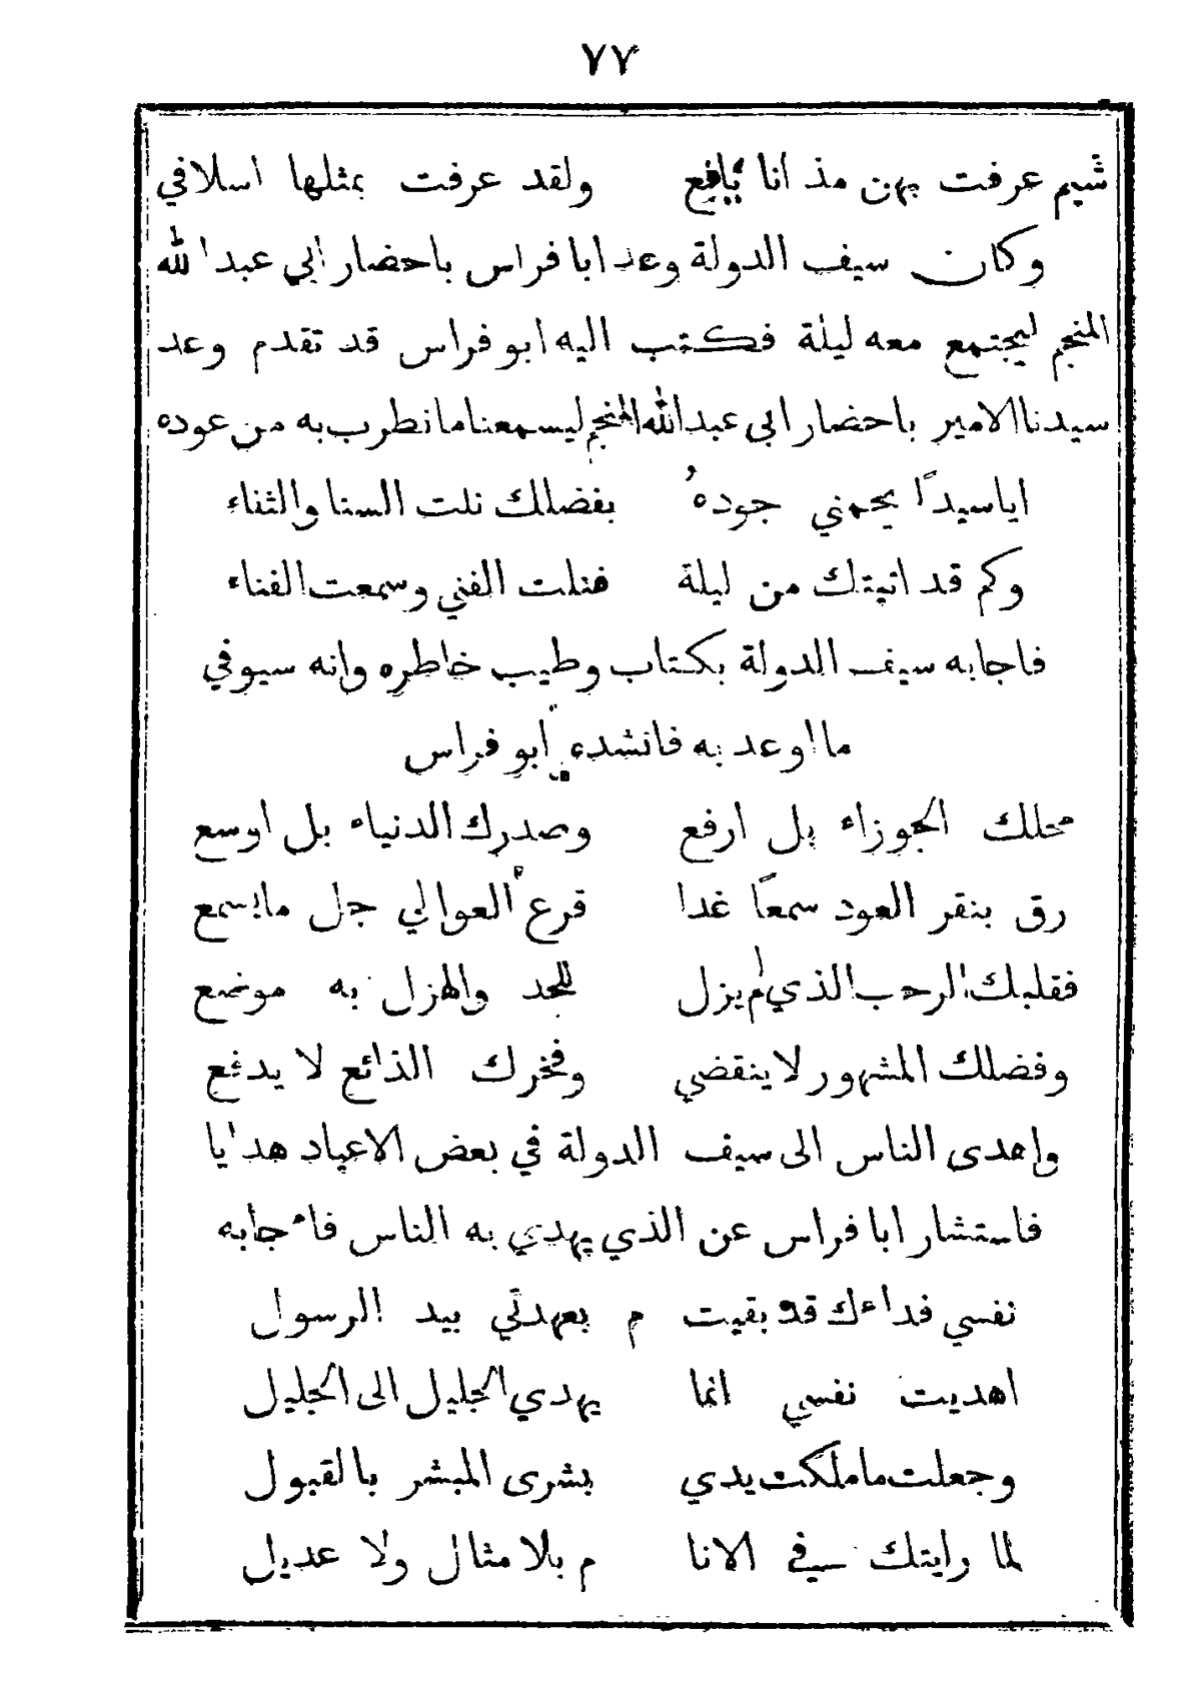 ٧٧
شيم عرفت بهن مذ انا يافع ولقد عرفت بمثلها اسلافي
وكان سيف الدولة وعد ابا فراس باحضار ابي عبد الله
المنجم ليجتمع معه ليلة فكتب اليه ابو فراس قد تقدم وعد
سيدنا الامير باحضار ابي عبد الله المنجم ليسمعنا ما نطرب به من عوده
اياسيدًا يحمني جودهُ بفضلك نلت السنا والثناء
وكم قد اتيتك من ليلة فنلت الغني وسمعت الغناء
فاجابه سيف الدولة بكتاب وطيب خاطره وانه سيوفي
ما اوعد به فانشده ابو فراس
محلك الجوزاء بل ارفع وصدرك الدنياء بل اوسع
رق بنقر العود سمعًا غدا قرع العوالي جل ما يسمع
فقلبك الرحب الذي لم يزل للجد والهزل به موضع
وفضلك المشهور لا ينقضي وفخرك الذائع لا يدفع
واهدى الناس الى سيف الدولة في بعض الاعياد هدايا
فاستشار ابا فراس عن الذي يهدي به الناس فاجابه
نفسي فداءك قد بقيت م بعهدتي بيد الرسول
اهديت نفسي انما يهدي الجليل الى الجليل
وجعلت ما ملكت يدي بشرى المبشر بالقبول
لما رايتك في الانا م بلا مثال ولا عديل